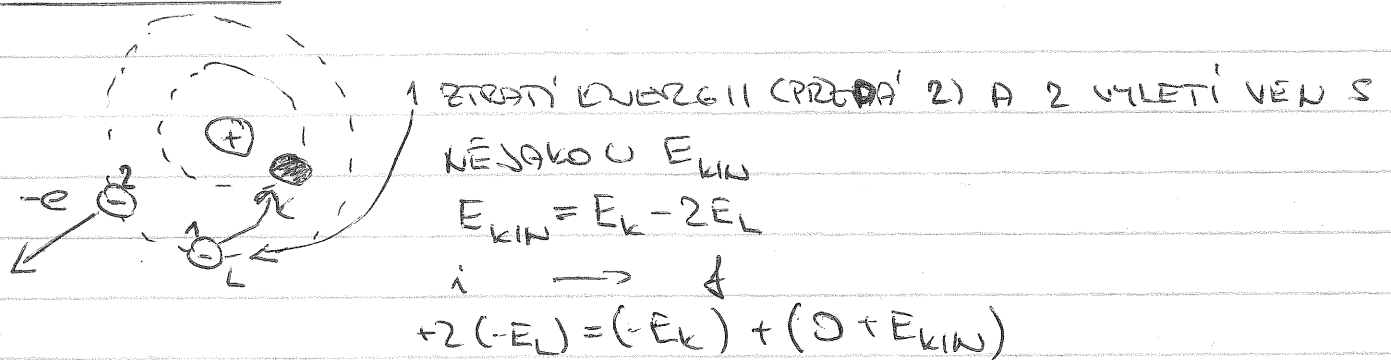 1 ZTRATÍ ENERGII (PŘEDÁ 2) A 2 VYLETÍ VEN S
NĚJAKOU E_KIN
E_KIN = E_K - 2E_L
i → f
+2(-E_L) = (-E_K) + (0 + E_KIN)
+
-e - 2
K
1 -
L